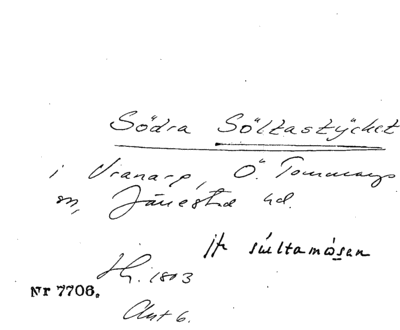 Södra Söltastycket
i Vranarp, Ö. Tommarps
sn, Järrestad hd.
jfr súltamósen
Lh. 1803
Nr 7706.
Akt 6.